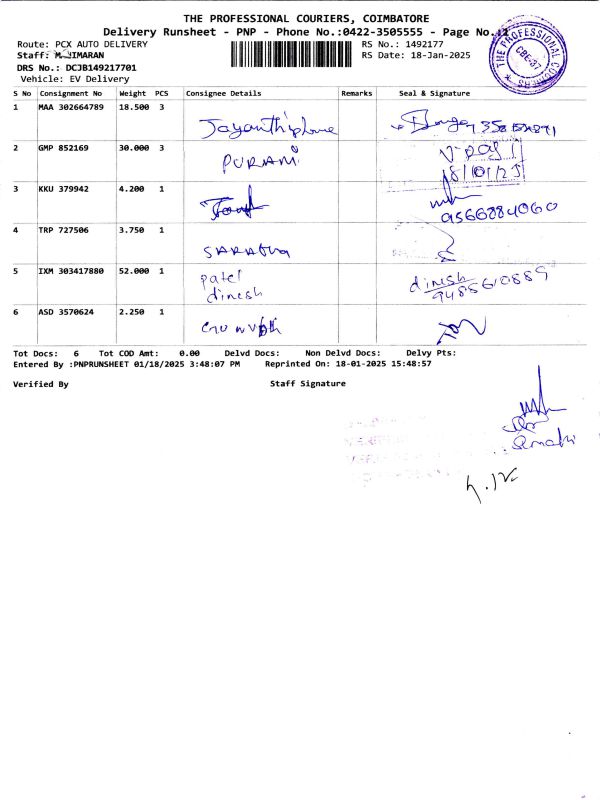 THE PROFESSIONAL COURIERS, COIMBATORE
Delivery Runsheet - PNP - Phone No.:0422-3505555 - Page No.
Route: PCX AUTO DELIVERY
RS No.: 1492177
Staff: M. JIMARAN
RS Date: 18-Jan-2025
DRS No.: DCJB149217701
Vehicle: EV Delivery
THE PROFESSIONAL COURIERS
CBE-37
S No Consignment No Weight PCS Consignee Details Remarks Seal & Signature
1 MAA 302664789 18.500 3
2 GMP 852169 30.000 3 PURANI
18/01/25
3 KKU 379942 4.200 1
9566884060
4 TRP 727506 3.750 1
5 IXM 303417880 52.000 1 Patel dinesh
dinesh
9485610889
6 ASD 3570624 2.250 1
Tot Docs: 6 Tot COD Amt: 0.00 Delvd Docs: Non Delvd Docs: Delvy Pts:
Entered By :PNPRUNSHEET 01/18/2025 3:48:07 PM Reprinted On: 18-01-2025 15:48:57
Verified By Staff Signature